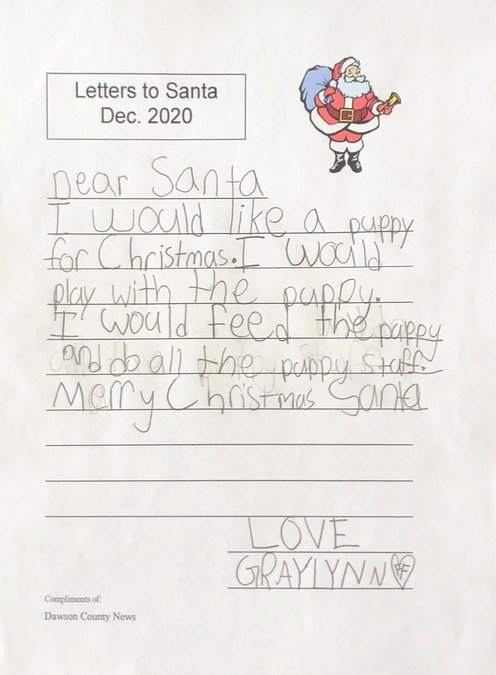 Letters to Santa
Dec. 2020
Dear Santa
I would like a puppy
for Christmas. I would
play with the puppy.
I would feed the pappy
and do all the puppy staff.
Merry Christmas Santa
LOVE
GRAYLYNN
Compliments of:
Dawson County News